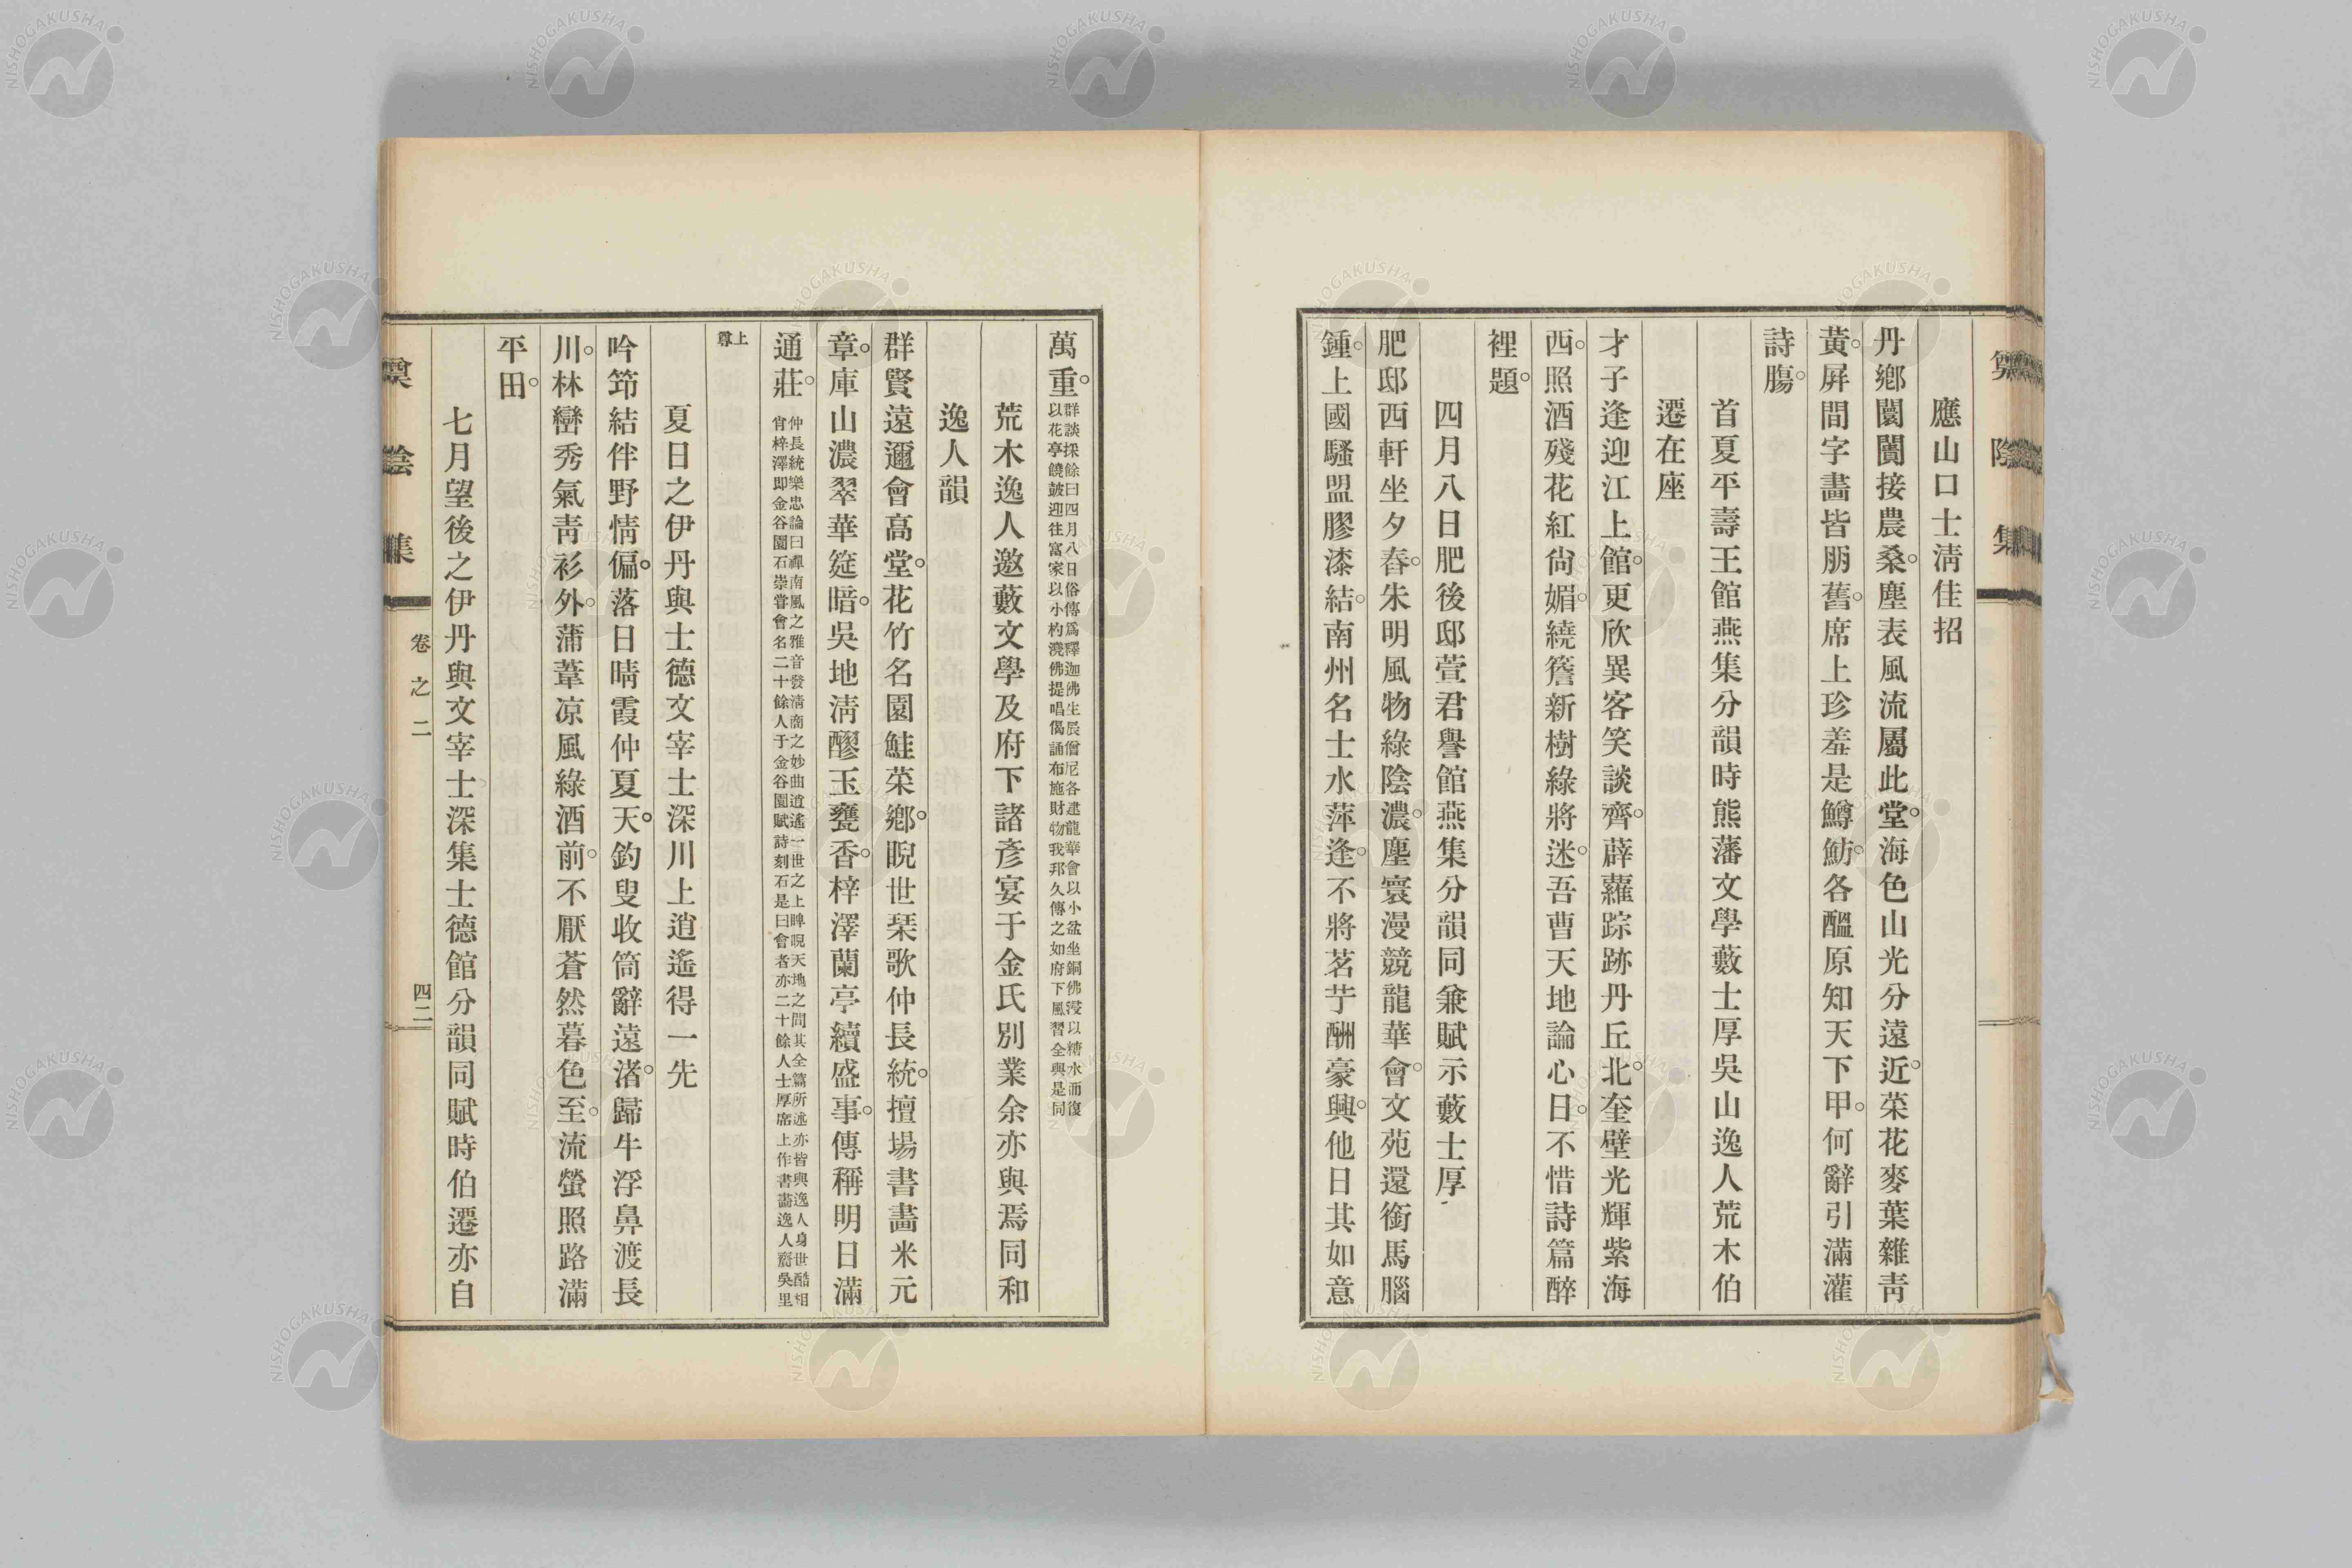 應山口士淸佳招
丹鄕闤闠接農桑。塵表風流屬此堂。海色山光分遠近。菜花麥葉雜靑
黃。屛間字畵皆朋舊。席上珍羞是鱒魴。各醞原知天下甲。何辭引滿灌
詩膓。
首夏平壽王館燕集分韻時熊藩文學藪士厚吳山逸人荒木伯
遷在座
才子逢迎江上館。更欣異客笑談齊。薜蘿踪跡丹丘北。奎壁光輝紫海
西。照酒殘花紅尙媚。繞簷新樹綠將迷。吾曹天地論心日。不惜詩篇醉
裡題。
四月八日肥後邸萱君譽館燕集分韻同兼賦示藪士厚
肥邸西軒坐夕舂。朱明風物綠陰濃。塵寰漫競龍華會。文苑還銜馬腦
鍾。上國騷盟膠漆結。南州名士水萍逢。不將茗艼酬豪興。他日其如意
萬重。
群談採餘曰四月八日俗傳爲釋迦佛生辰僧尼各建龍華會以小盆坐銅佛浸以糖水而復
以花亭饒皷迎往富家以小杓澆佛提唱偈誦布施財物我邦久傳之如府下風習全與是同
荒木逸人邀藪文學及府下諸彥宴于金氏別業余亦與焉同和
逸人韻
群賢遠邇會高堂。花竹名園鮭菜鄕。睨世琹歌仲長統。擅場書畵米元
章。庫山濃翠華筵暗。吳地淸醪玉甕香。梓澤蘭亭續盛事。傳稱明日滿
通莊。
仲長統樂忠論曰彈南風之雅音發淸商之妙曲逍遙一世之上睥睨天地之間其全篇所述亦皆與逸人身世酷相
肖梓澤即金谷園石崇嘗會名二十餘人于金谷園賦詩刻石是日會者亦二十餘人士厚席上作書畵逸人齎吳里
上
尊
夏日之伊丹與士德文宰士深川上逍遙得一先
吟筇結伴野情偏。落日晴霞仲夏天。釣叟收筒辭遠渚。歸牛浮鼻渡長
川。林巒秀氣靑衫外。蒲葦凉風綠酒前。不厭蒼然暮色至。流螢照路滿
平田。
卷之二
四二
七月望後之伊丹與文宰士深集士德館分韻同賦時伯遷亦自